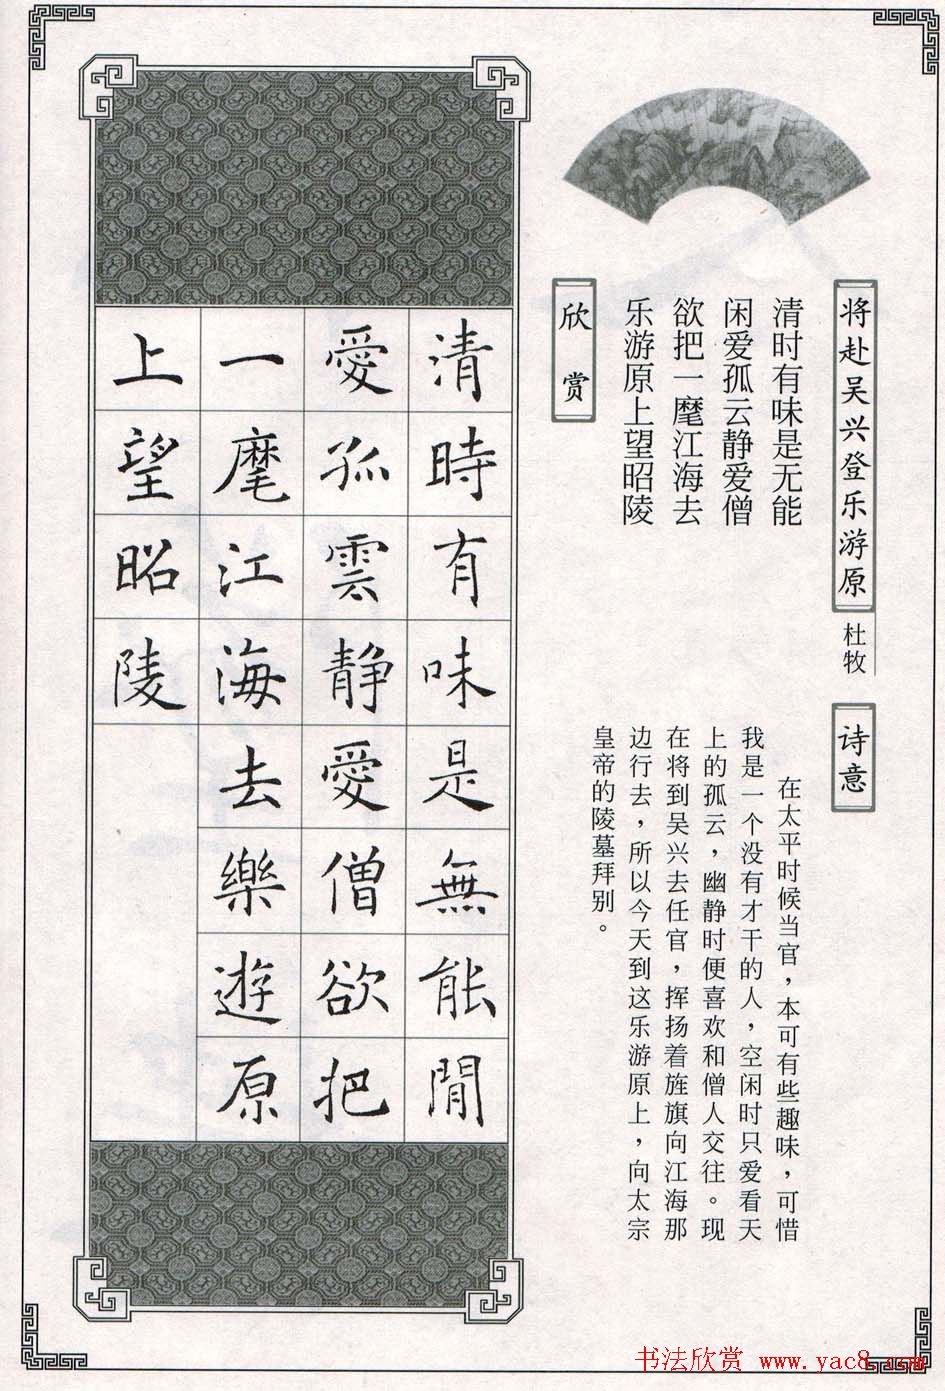 将赴吴兴登乐游原
杜牧
清时有味是无能
闲爱孤云静爱僧
欲把一麾江海去
乐游原上望昭陵
诗意
在太平时候当官，本可有些趣味，可惜
我是一个没有才干的人，空闲时只爱看天
上的孤云，幽静时便喜欢和僧人交往。现
在将到吴兴去任官，挥扬着旌旗向江海那
边行去，所以今天到这乐游原上，向太宗
皇帝的陵墓拜别。
欣赏
清時有味是無能閒
愛孤雲静愛僧欲把
一麾江海去樂遊原
上望昭陵
书法欣赏 www.yac8.com